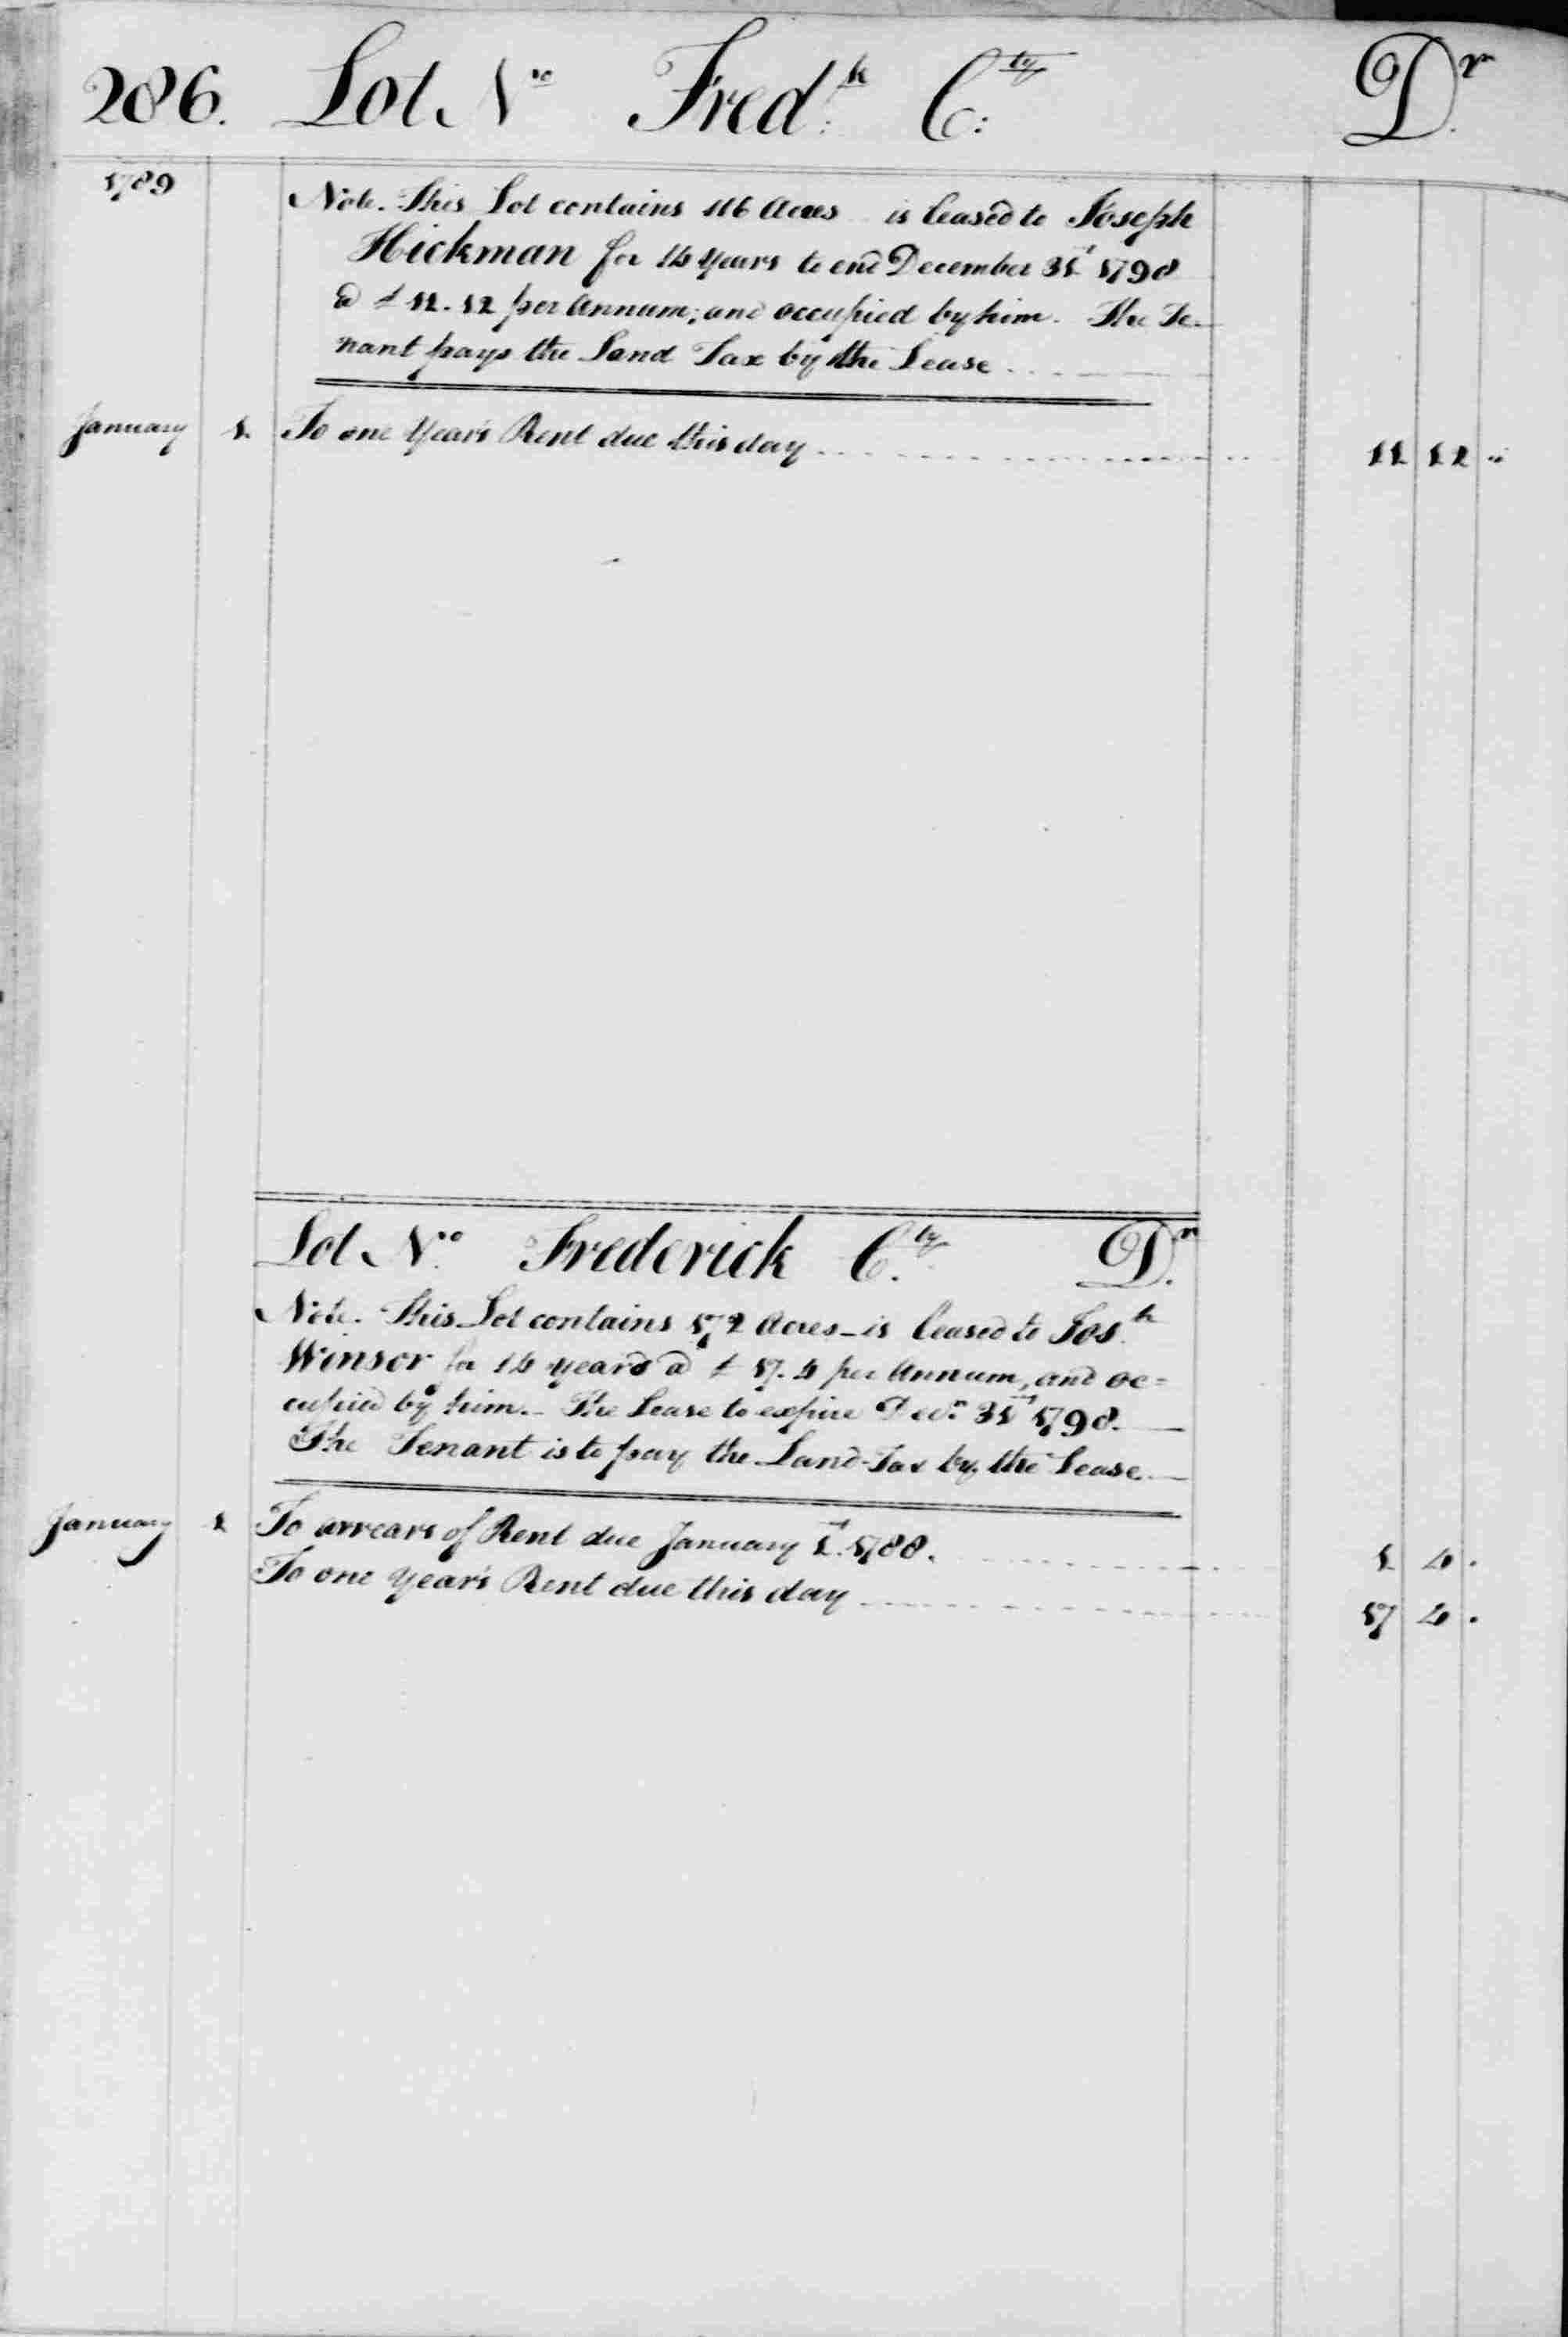 286. Lot No Fredk: C:ty Dr.
1789
Note. This Lot contains 116 Acres is leased to Joseph
Hickman for 14 Years to end December 31st 1798
@ £ 11.12 per Annum; and occupied by him. The Te-
nant pays the Land Tax by the Lease
January 1. To one Year's Rent due this day 11 12 "
Lot No. Frederick C.ty Dr.
Note. This Lot contains 172 Acres - is leased to Jos.h
Winsor for 14 years @ £ 17.4 per Annum, and oc=
cupied by him. - The Lease to expire Decr. 31st 1798. —
The Tenant is to pay the Land-Tax by the Lease. —
January 1 To arrears of Rent due January 1st. 1788. 1 4 .
To one year's Rent due this day 17 4 .